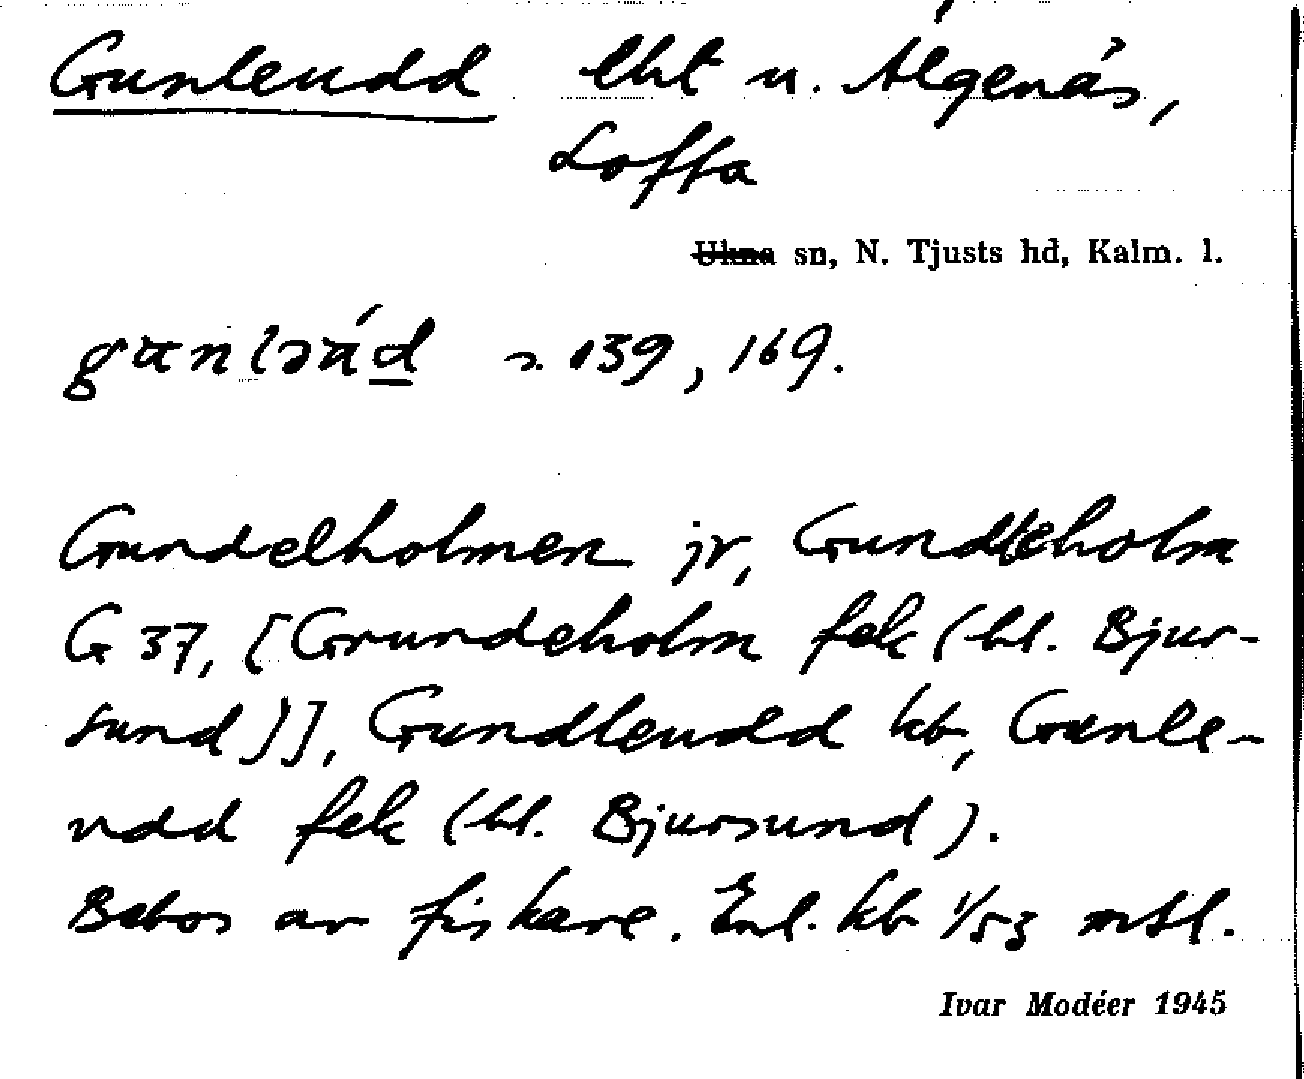 Gunleudd lht u. Älgenäs,
Loffta
Ukna sn, N. Tjusts hd, Kalm. l.
139, 169.
Gundelholmen jr, Gundleholm
G 37, [Grundeholm fek (bl. Bjur-
sund)], Gundleudd kb, Gunle-
udd fek (bl. Bjursund).
Bebos av fiskare. Enl. kb 1/53 mtl.
Ivar Modéer 1945